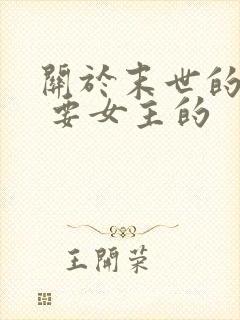 關於末世的
要女主的
王開荣